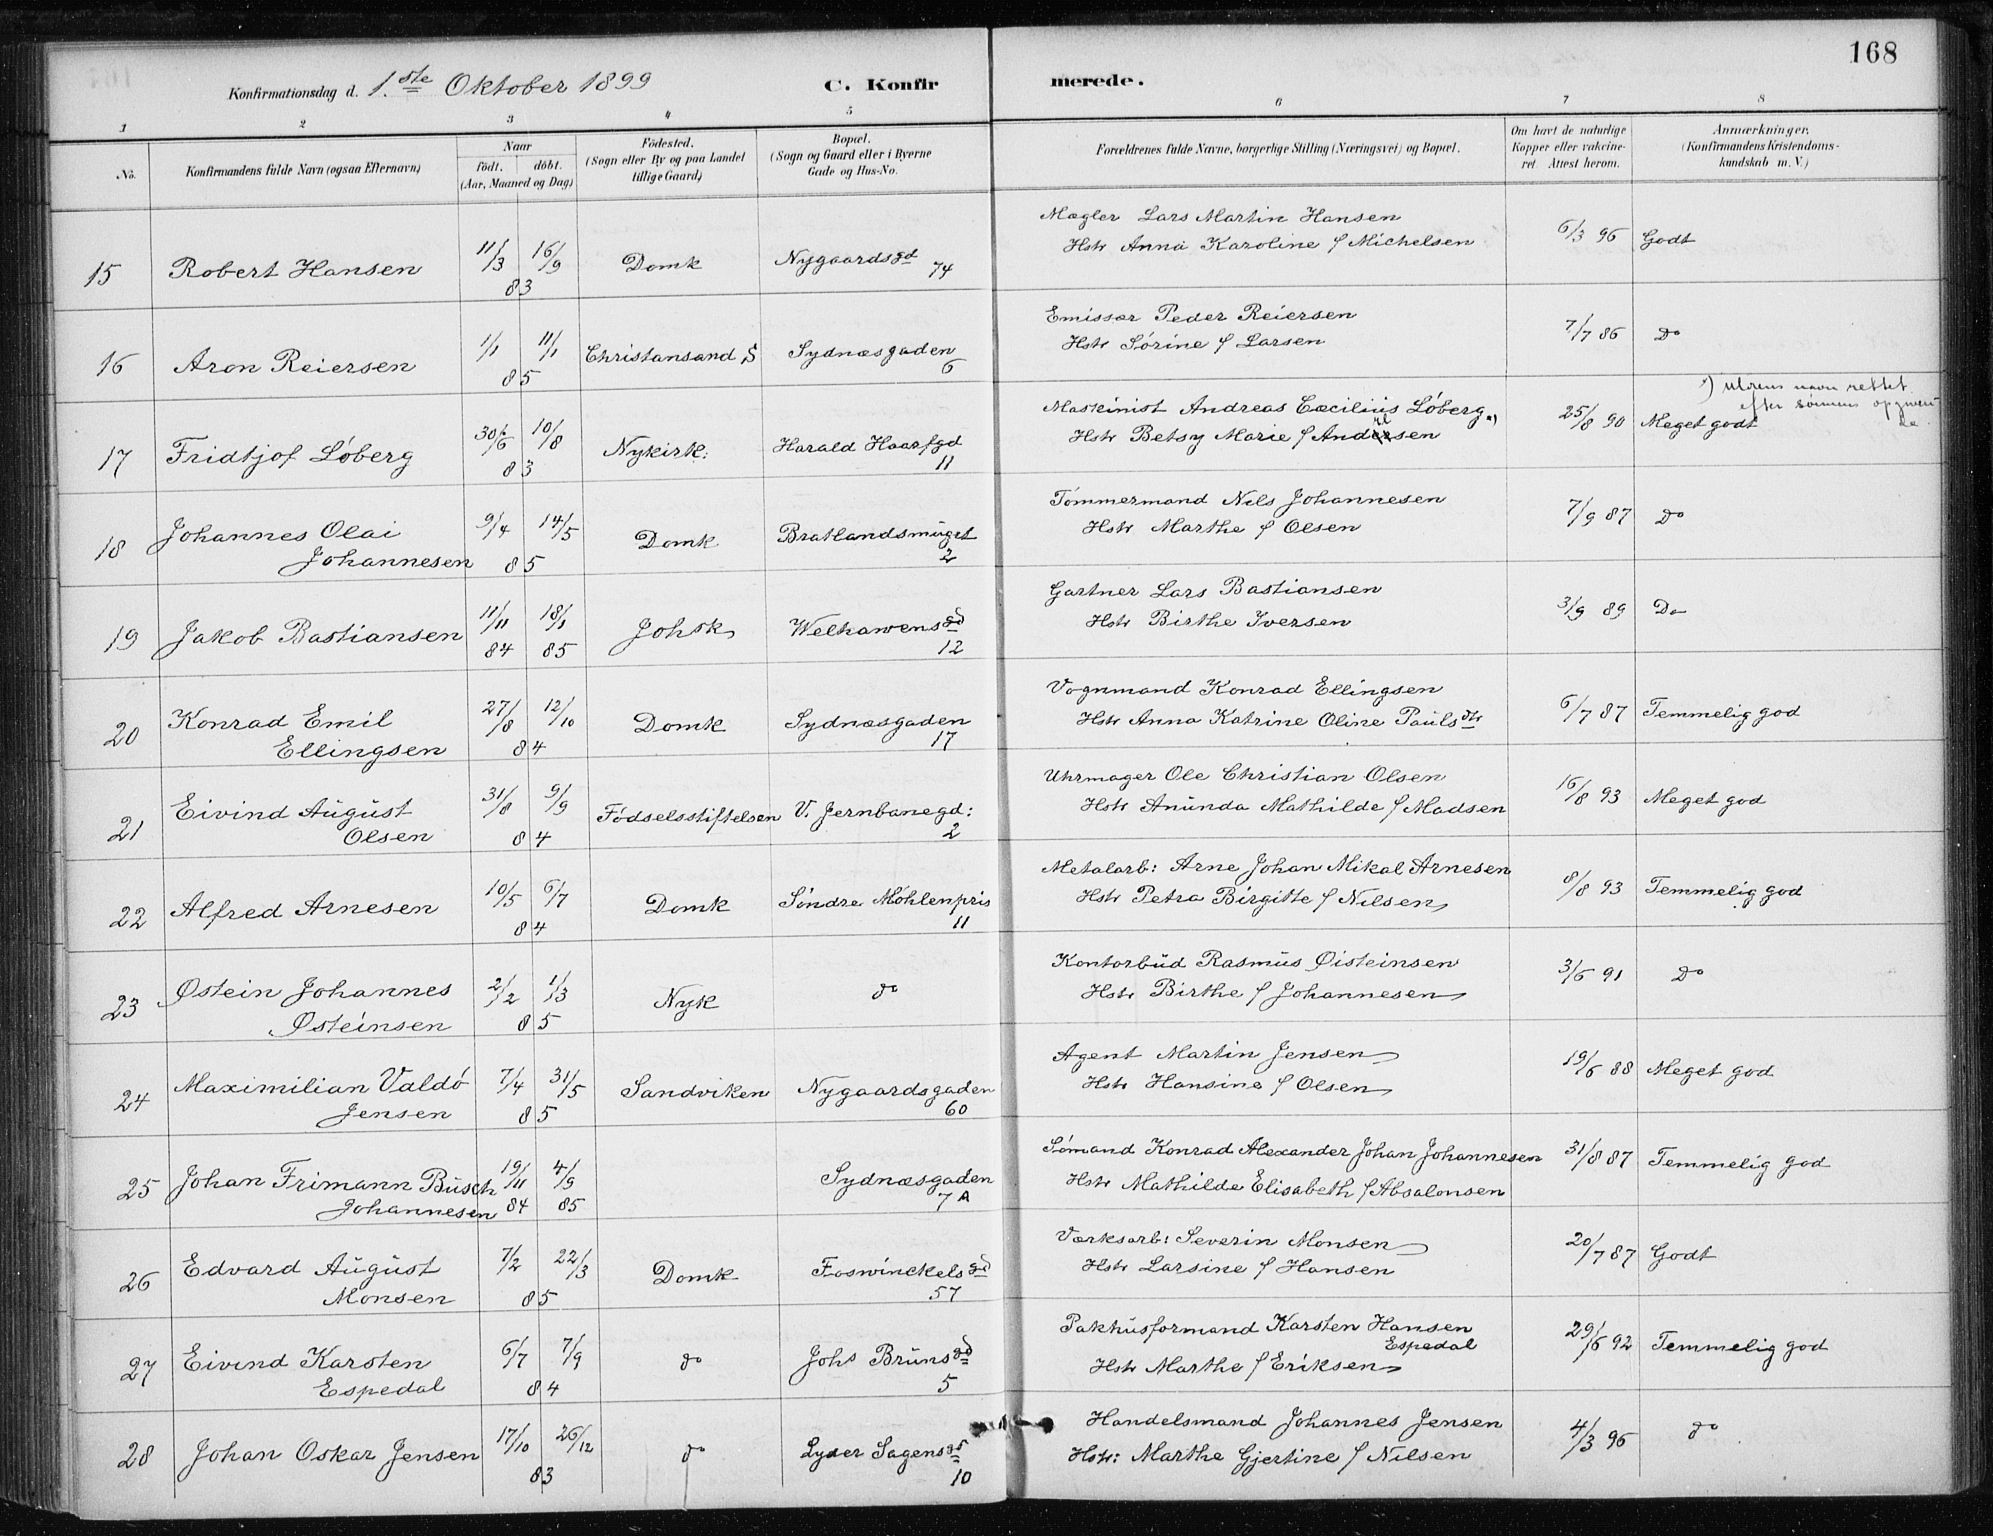 168
Konfirmationsdag d. 1.ste Oktober 1899 C. Konfirmerede.
1 2 3 4 5 6 7 8
No. Konfirmandens fulde Navn (ogsaa Efternavn) Naar födt. döbt. (Aar, Maaned og Dag) Födested. (Sogn eller By og paa Landet tillige Gaard) Bopæl. (Sogn og Gaard eller i Byerne Gade og Hus-No. Forældrenes fulde Navne, borgerlige Stilling (Næringsvei) og Bopæl. Om havt de naturlige Kopper eller vakcineret. Attest herom. Anmærkninger. (Konfirmandens Kristendomskundskab m. V.)
15 Robert Hansen 11/3 16/9 83 Domk Nygaardsgd 74 Mægler Lars Martin Hansen
Hstr Anna Karoline f Michelsen 6/3 96 Godt
16 Aron Reiersen 1/1 11/1 85 Christansand S Sydnæsgaden 6 Emissær Peder Reiersen
Hstr Sörine f Larsen 7/7 86 Do
17 Fridtjof Löberg 30/6 10/8 83 Nykirk: Harald Haarfgd 11 Maskinist Andreas Cæcilius Löberg *)
Hstr Betsy Marie f Andersen 25/8 90 Meget godt
*) navn rettet
efter sönnens
18 Johannes Olai
Johannesen 9/4 14/5 85 Domk Bratlandsmuget 2 Tömmermand Nils Johannesen
Hstr Marthe f Olsen 7/9 87 Do
19 Jakob Bastiansen 11/11 84 18/1 85 Johsk Welhavensgd 12 Gartner Lars Bastiansen
Hstr Birthe Iversen 3/9 89 Do
20 Konrad Emil
Ellingsen 27/8 12/10 84 Domk Sydnæsgaden 17 Vognmand Konrad Ellingsen
Hstr Anna Katrine Oline Paulsdtr 6/7 87 Temmelig god
21 Eivind August
Olsen 31/8 9/9 84 Födselsstiftelsen V. Jernbanegd: 2 Uhrmager Ole Christian Olsen
Hstr Anunda Mathilde f Madsen 16/8 93 Meget god
22 Alfred Arnesen 10/5 6/7 84 Domk Söndre Möhlenpris 11 Metalarb: Arne Johan Mikal Arnesen
Hstr Petra Birgitte f Nilsen 8/8 93 Temmelig god
23 Östein Johannes
Östeinsen 2/2 1/3 85 Nyk do Kontorbud Rasmus Öisteinsen
Hstr Birthe f Johannesen 3/6 91 Do
24 Maximilian Valdö
Jensen 7/4 31/5 85 Sandviken Nygaardsgaden 60 Agent Martin Jensen
Hstr Hansine f Olsen 19/6 88 Meget god
25 Johan Frimann Busch
Johannesen 19/11 84 4/9 85 Sydnæsgaden 7 A Sömand Konrad Alexander Johan Johannesen
Hstr Mathilde Elisabeth f Absalonsen 31/8 87 Temmelig god
26 Edvard August
Monsen 7/2 22/3 85 Domk Foswinckelsgd 57 Værksarb: Severin Monsen
Hstr Larsine f Hansen 20/7 87 Godt
27 Eivind Karsten
Espedal 6/7 7/9 84 do Johs Brunsgd 5 Pakhusformand Karsten Hansen
Espedal
Hstr Marthe f Eriksen 29/6 92 Temmelig god
28 Johan Oskar Jensen 17/10 26/12 83 do Lyder Sagensgd 10 Handelsmand Johannes Jensen
Hstr: Marthe Gjertine f Nilsen 4/3 96 do